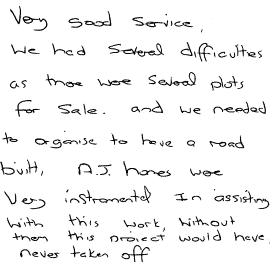 Very good service,
we had several difficulties
as there were several plots
for sale. and we needed
to organise to have a road
built, A.J. homes were
Very instromental In assisting
with this work, without
them this project would have
never taken off